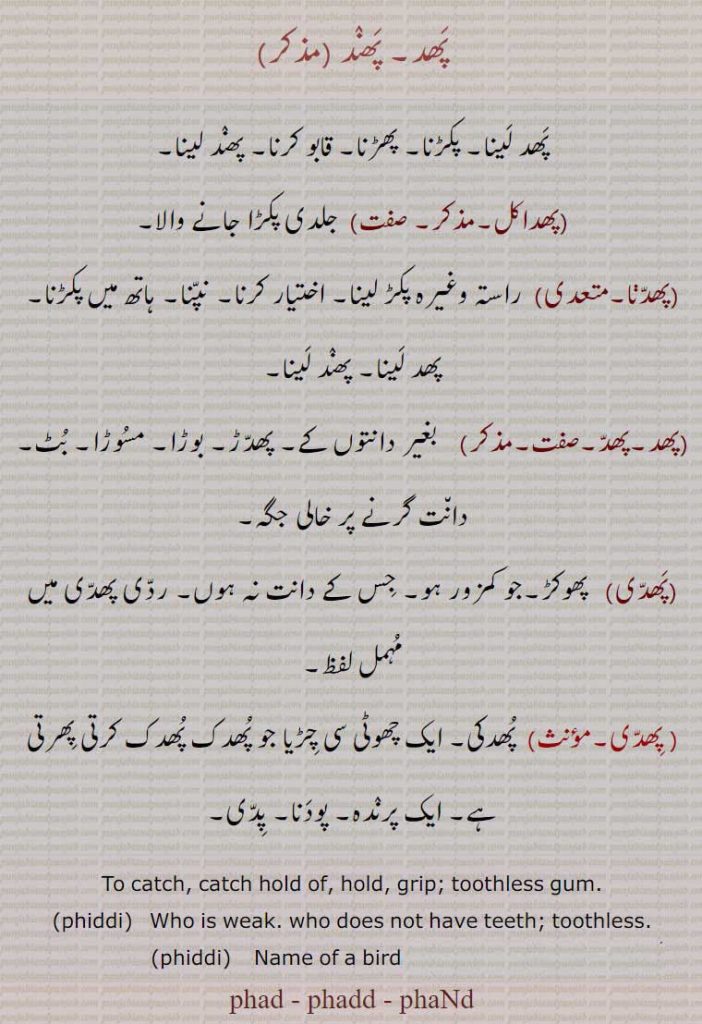 پَھد ۔ پَھنْد (مذکر)
پَھد لَینا۔ پکڑنا۔ پھڑنا۔ قابو کرنا۔ پھنْد لینا۔
(پھداکل۔مذکر۔ صفت) جلدی پکڑا جانے والا۔
(پھدّنا۔متعدی) راستہ وغیرہ پکڑ لینا۔ اختیار کرنا۔ نپّنا۔ ہاتھ میں پکڑنا۔
پھد لَینا۔ پھنْد لَینا۔
(پھد۔پھدّ۔صفت۔مذکر) بغیر دانتوں کے۔ پھدّڑ۔ بوڑا۔ مسُوڑا۔ بُٹ۔
دانّت گرنے پر خالی جگہ۔
(پَھدّی) پھوکڑ۔جو کمزور ہو۔ جِس کے دانت نہ ہوں۔ ردّی پھدّی میں
مُہمل لفظ۔
(پِھدّی۔مؤنث) پُھدکی۔ ایک چھوٹی سی چِڑیا جو پُھدک پُھدک کرتی پِھرتی
ہے۔ ایک پرنْدہ۔ پودَنا۔ پِدّی۔
To catch, catch hold of, hold, grip; toothless gum.
(phiddi) Who is weak. who does not have teeth; toothless.
(phiddi) Name of a bird
phad - phadd - phaNd